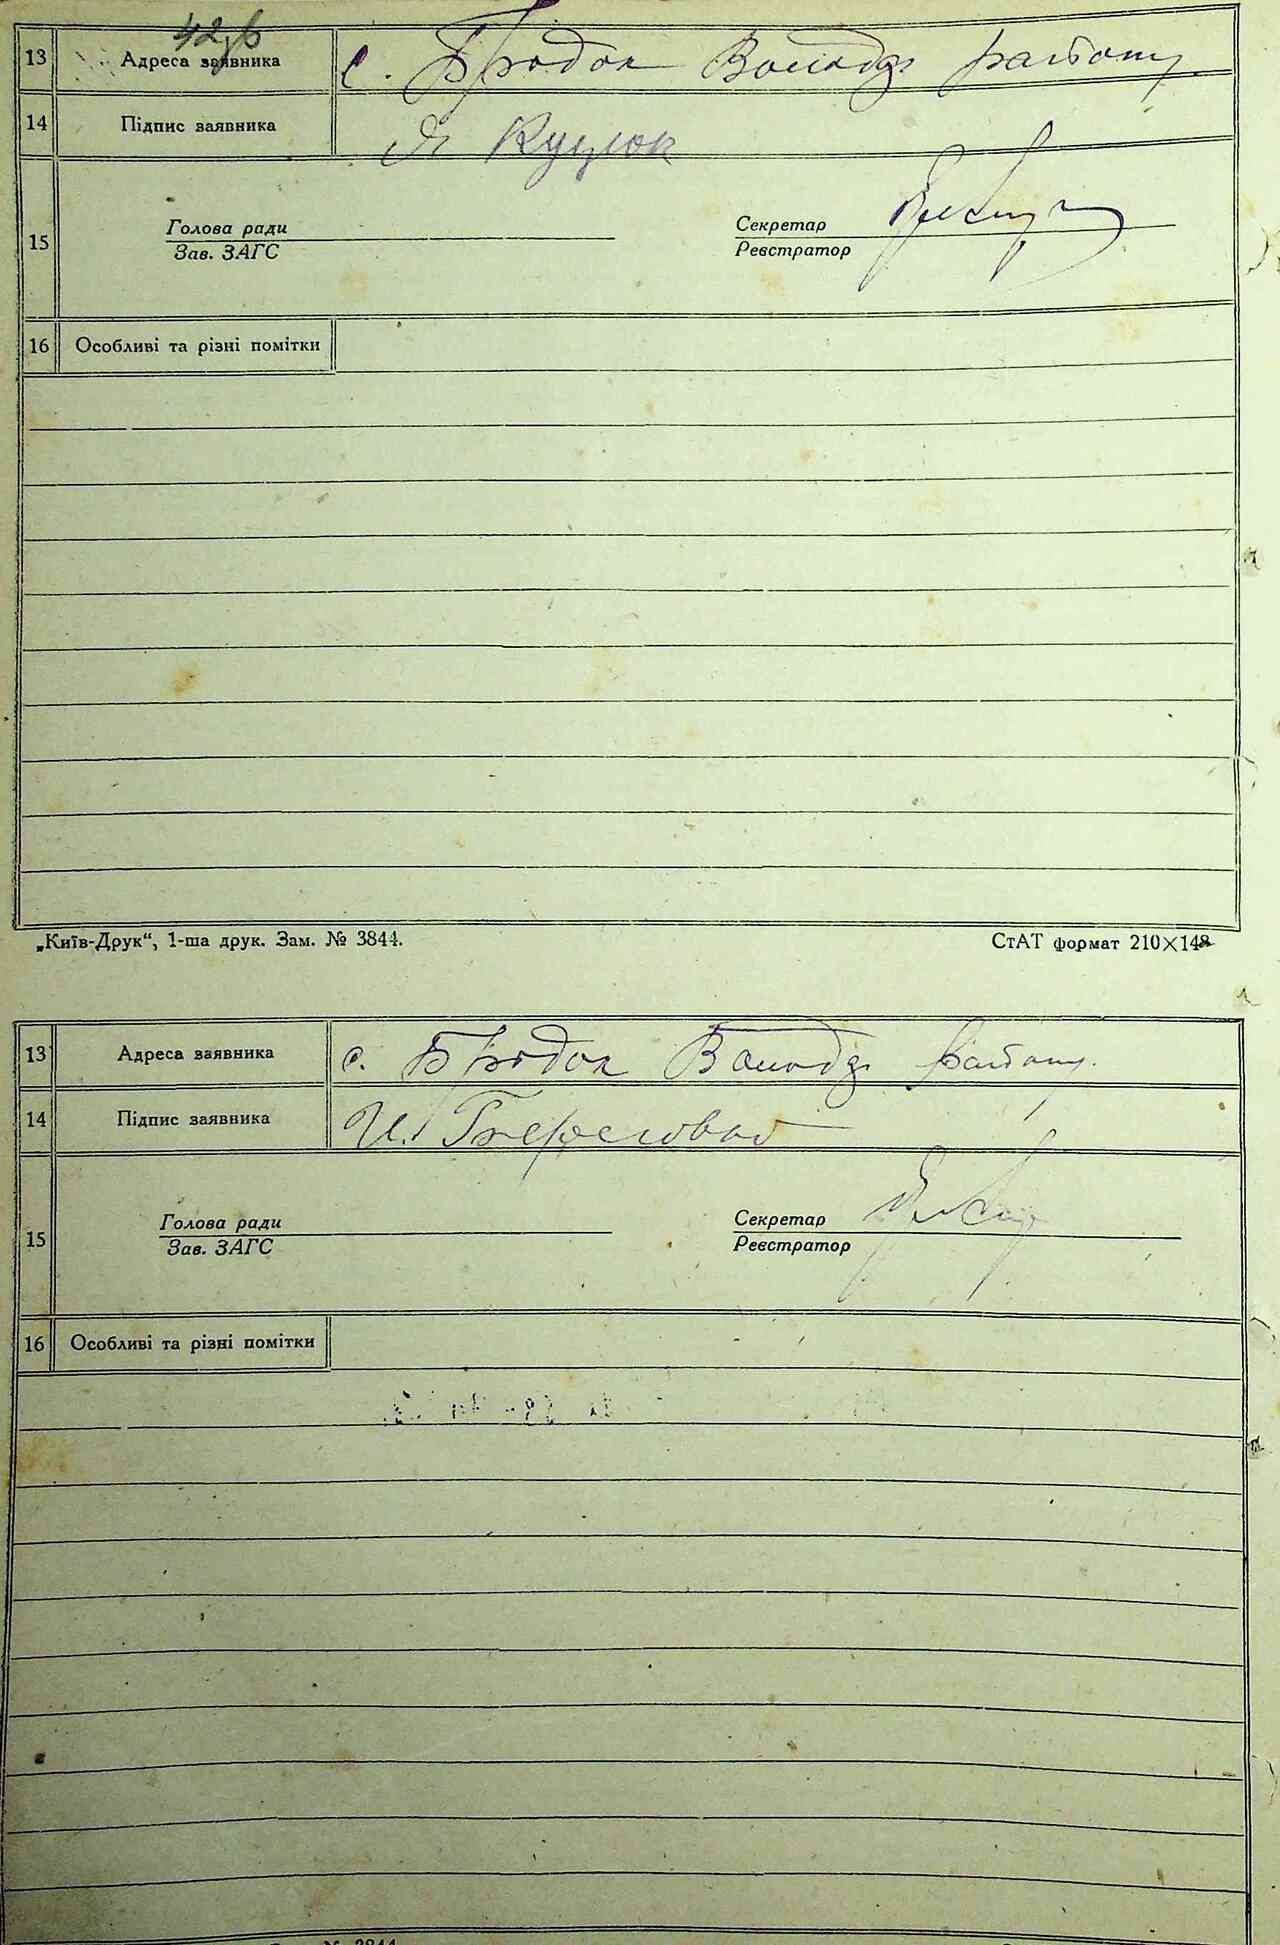 42зв
13 Адреса заявника с. Бродок Володр району
14 Підпис заявника Куцюк
15 Голова ради Секретар
Зав. ЗАГС Реєстратор
16 Особливі та різні помітки
„Київ-Друк“, 1-ша друк. Зам. № 3844. СтАТ формат 210×148
13 Адреса заявника с. Бродок Володр району.
14 Підпис заявника И.
15 Голова ради Секретар
Зав. ЗАГС Реєстратор
16 Особливі та різні помітки
№ 3844